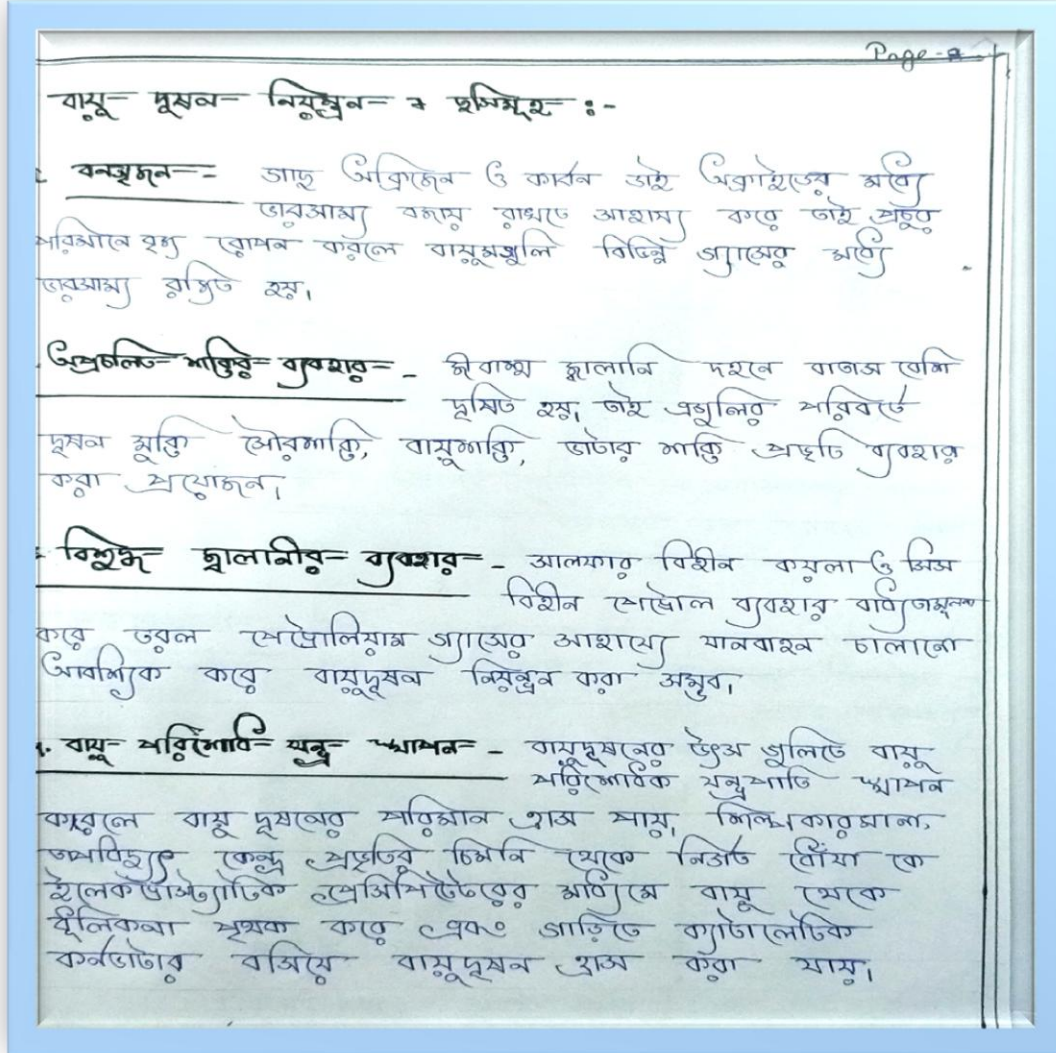 Page-2
বায়ু- দূষন- নিয়ন্ত্রন- :-
বনসৃজন- - গাছ অক্সিজেন ও কার্বন ডাই অক্সাইডের মধ্যে
ভারসাম্য বজায় রাখতে সাহায্য করে তাই প্রচুর
পরিমানে বৃক্ষ রোপন করলে বায়ুমণ্ডলি বিভিন্ন গ্যাসের মধ্যে
ভারসাম্য রক্ষিত হয়।
অপ্রচলিত- শক্তির- ব্যবহার- - জীবাশ্ম জ্বালানি দহনে বাতাস বেশি
দূষিত হয়, তাই এগুলির পরিবর্তে
দূষন মুক্তি সৌরশক্তি, বায়ুশক্তি, ভাটার শক্তি প্রভৃতি ব্যবহার
করা প্রয়োজন।
বিশুদ্ধ- জ্বালানীর- ব্যবহার- - সালফার বিহীন কয়লা ও সিস
বিহীন পেট্রোল ব্যবহার বাধ্যতামূলক
করে তরল পেট্রোলিয়াম গ্যাসের সাহায্যে যানবাহন চালানো
আবশ্যিক করে বায়ুদূষন নিয়ন্ত্রন করা সম্ভব।
বায়ু- পরিশোধি- যন্ত্র- স্থাপন- - বায়ুদূষনের উৎস গুলিতে বায়ু
পরিশোধিক যন্ত্রপাতি স্থাপন
করলে বায়ু দূষনের পরিমান হ্রাস পায়, শিল্পকারখানা,
তাপবিদ্যুৎ কেন্দ্র প্রভৃতির চিমনি থেকে নির্গত ধোঁয়া কে
ইলেকট্রোস্ট্যাটিক প্রেসিপিটেটরের মাধ্যিমে বায়ু থেকে
ধূলিকনা পৃথক করে এবং গাড়িতে ক্যাটালেটিক
কনর্ভাটার বসিয়ে বায়ুদূষন হ্রাস করা যায়।